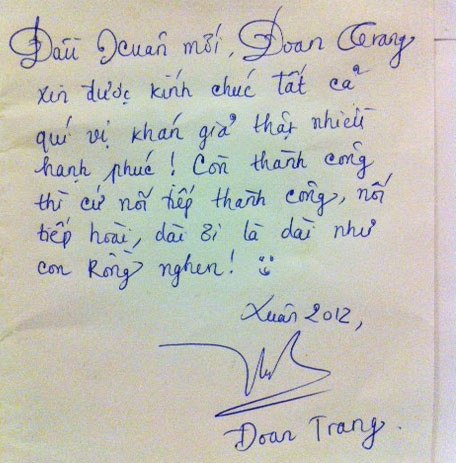 Đầu Xuân mới, Đoan Trang
xin được kính chúc tất cả
quí vị khán giả thật nhiều
hạnh phúc! Còn thành công
thì cứ nối tiếp thành công, nối
tiếp hoài, dài ơi là dài như
con Rồng nghen!
Xuân 2012,
Đoan Trang.